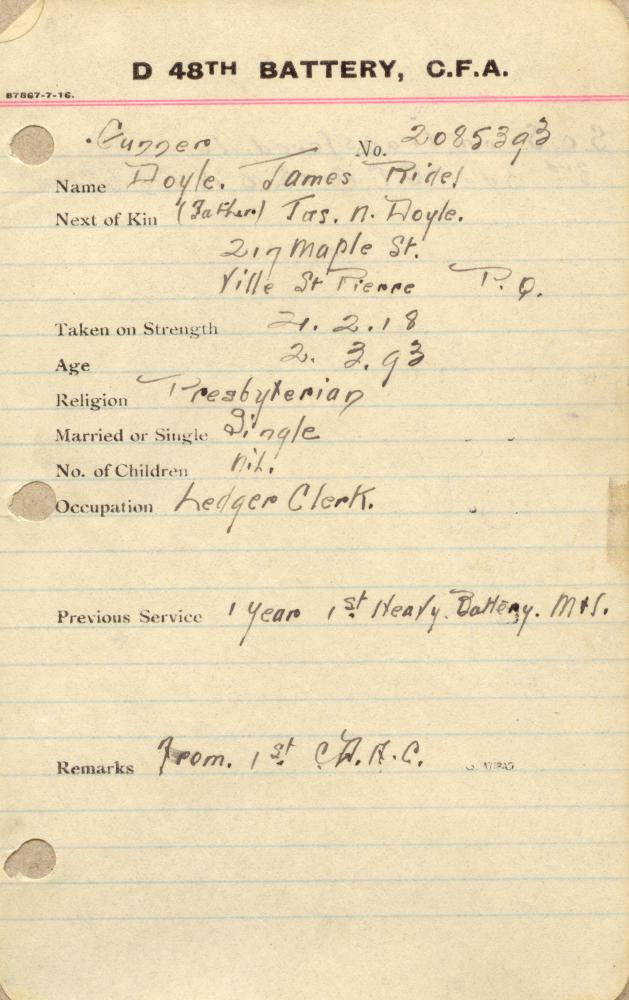 D 48TH BATTERY, C.F.A.
B7867-7-16.
Gunner No. 2085393
Name Doyle. James
Next of Kin (Father) Jas. N. Doyle.
217 Maple St.
Ville St Pierre P.Q.
Taken on Strength 2.18
Age 2. 3. 93
Religion Presbyterian
Married or Single Single
No. of Children Nil.
Occupation Ledger Clerk.
Previous Service 1 Year 1st Heavy. Battery.
Remarks From. 1st